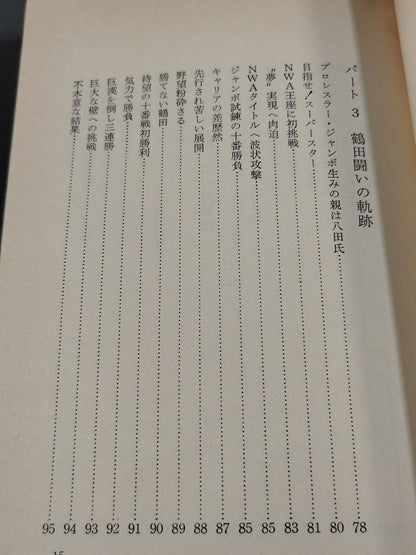 パート 3 鶴田闘いの軌跡
プロレスラー・ジャンボ生みの親は八田氏……78
目指せ!スーパースター……80
NWA王座に初挑戦……81
“夢”実現へ肉迫……83
NWAタイトルへ波状攻撃……85
ジャンボ試練の十番勝負……85
キャリアの差歴然……87
先行され苦しい展開……88
野望粉砕さる……89
勝てない鶴田……90
待望の十番戦初勝利……91
気力で勝負……92
巨漢を倒し三連勝……93
巨大な壁への挑戦……94
不本意な結果……95
15